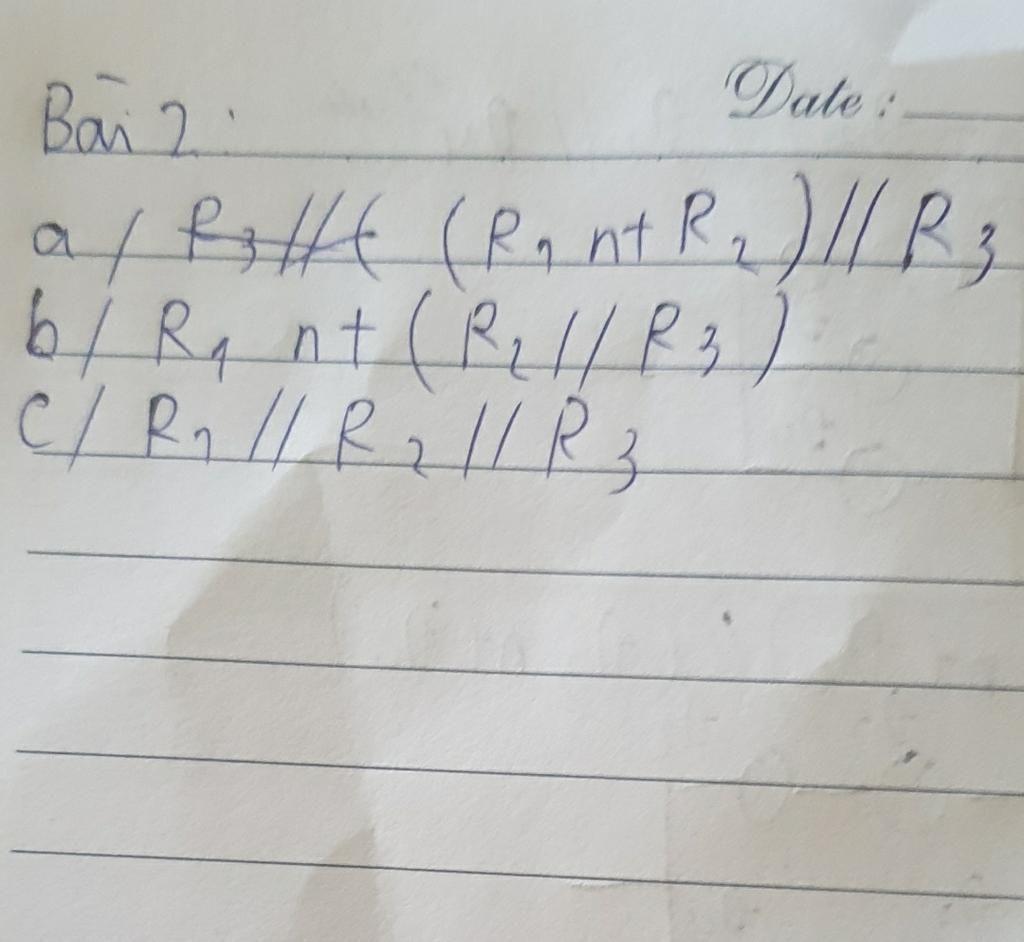 Bài 2:
Date:
a/ R3//( (R1 nt R2)//R3
b/ R1 nt (R2//R3)
c/ R1//R2//R3